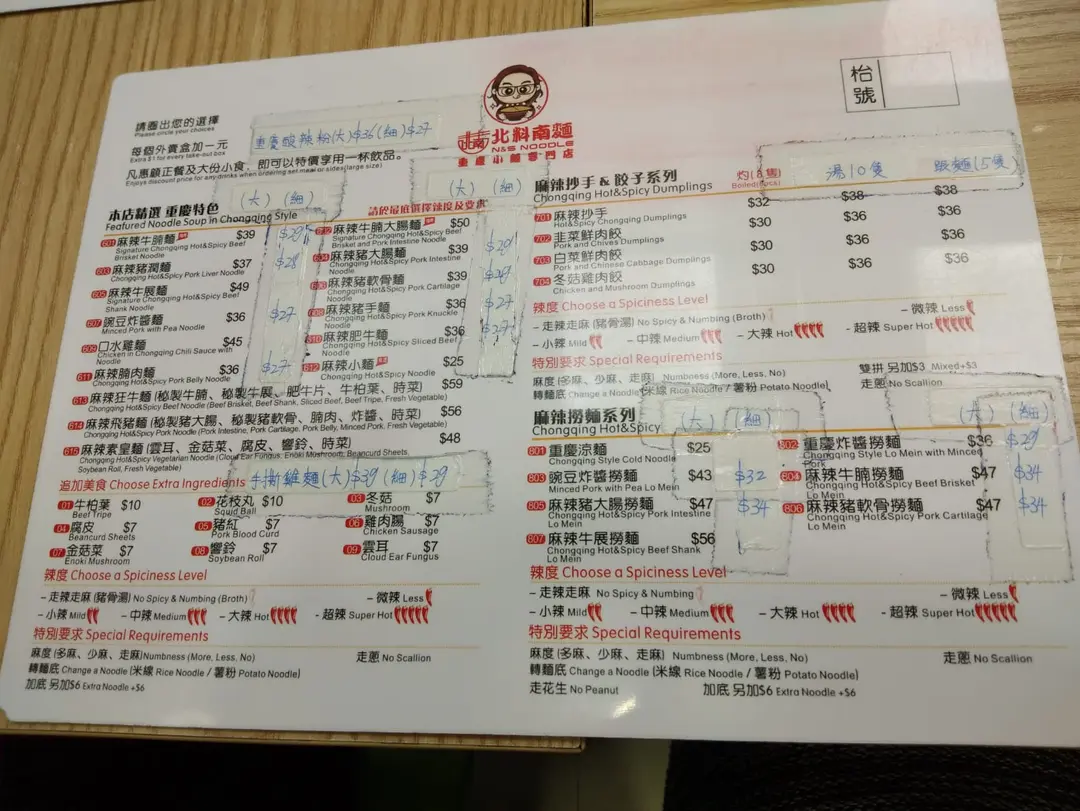 請圈出您的選擇
Please circle your choices
每個外賣盒加一元
Extra $1 for every take-out box
凡惠顧正餐及大份小食，即可以特價享用一杯飲品。
Enjoys discount price for any drinks when ordering set meal or sides(large size)
重慶酸辣粉(大)$36(細)$27
北料南麵
N&S NOODLE
重慶小麵專門店
枱號
本店精選 重慶特色
Featured Noodle Soup in Chongqing Style
請於最底選擇辣度及要求
(大) (細)
(大) (細)
601 麻辣牛腩麵 $39 $29
Signature Chongqing Hot&Spicy Beef Brisket Noodle
603 麻辣豬潤麵 $37 $28
Chongqing Hot&Spicy Pork Liver Noodle
605 麻辣牛展麵 $49
Signature Chongqing Hot&Spicy Beef Shank Noodle
607 豌豆炸醬麵 $36 $27
Minced Pork with Pea Noodle
609 口水雞麵 $45
Chicken in Chongqing Chili Sauce with Noodle
611 麻辣腩肉麵 $36 $27
Chongqing Hot&Spicy Pork Belly Noodle
602 麻辣牛腩大腸麵 $50
Signature Chongqing Hot&Spicy Beef Brisket and Pork Intestine Noodle
604 麻辣豬大腸麵 $39 $29
Chongqing Hot&Spicy Pork Intestine Noodle
606 麻辣豬軟骨麵 $39 $29
Chongqing Hot&Spicy Pork Cartilage Noodle
608 麻辣豬手麵 $36 $27
Chongqing Hot&Spicy Pork Knuckle Noodle
610 麻辣肥牛麵 $36 $27
Chongqing Hot&Spicy Sliced Beef Noodle
612 麻辣小麵 $25
Chongqing Hot&Spicy Noodle
613 麻辣狂牛麵 (秘製牛腩、秘製牛展、肥牛片、牛柏葉、時菜) $59
Chongqing Hot&Spicy Beef Noodle (Beef Brisket, Beef Shank, Sliced Beef, Beef Tripe, Fresh Vegetable)
614 麻辣飛豬麵 (秘製豬大腸、秘製豬軟骨、腩肉、炸醬、時菜) $56
Chongqing Hot&Spicy Pork Noodle (Pork Intestine, Pork Cartilage, Pork Belly, Minced Pork, Fresh Vegetable)
615 麻辣素皇麵 (雲耳、金菇菜、腐皮、響鈴、時菜) $48
Chongqing Hot&Spicy Vegetarian Noodle (Cloud Ear Fungus, Enoki Mushroom, Beancurd Sheets, Soybean Roll, Fresh Vegetable)
追加美食 Choose Extra Ingredients
手撕雞麵(大)$39(細)$29
01 牛柏葉 $10 02 花枝丸 $10 03 冬菇 $7
Beef Tripe Squid Ball Mushroom
04 腐皮 $7 05 豬紅 $7 06 雞肉腸 $7
Beancurd Sheets Pork Blood Curd Chicken Sausage
07 金菇菜 $7 08 響鈴 $7 09 雲耳 $7
Enoki Mushroom Soybean Roll Cloud Ear Fungus
辣度 Choose a Spiciness Level
- 走辣走麻 (豬骨湯) No Spicy & Numbing (Broth) - 微辣 Less
- 小辣 Mild - 中辣 Medium - 大辣 Hot - 超辣 Super Hot
特別要求 Special Requirements
麻度 (多麻、少麻、走麻) Numbness (More, Less, No) 走蔥 No Scallion
轉麵底 Change a Noodle (米線 Rice Noodle / 薯粉 Potato Noodle)
加底 另加$6 Extra Noodle +$6
麻辣抄手 & 餃子系列
Chongqing Hot&Spicy Dumplings
湯10隻 跟麵(5隻)
701 麻辣抄手 $32 $38 $38
Hot&Spicy Chongqing Dumplings
702 韭菜鮮肉餃 $30 $36 $36
Pork and Chives Dumplings
703 白菜鮮肉餃 $30 $36 $36
Pork and Chinese Cabbage Dumplings
704 冬菇雞肉餃 $30 $36 $36
Chicken and Mushroom Dumplings
辣度 Choose a Spiciness Level
- 走辣走麻 (豬骨湯) No Spicy & Numbing (Broth) - 微辣 Less
- 小辣 Mild - 中辣 Medium - 大辣 Hot - 超辣 Super Hot
特別要求 Special Requirements
麻度 (多麻、少麻、走麻) Numbness (More, Less, No) 雙拼 另加$3 Mixed+$3
轉麵底 Change a Noodle (米線 Rice Noodle / 薯粉 Potato Noodle) 走蔥 No Scallion
麻辣撈麵系列
Chongqing Hot&Spicy
(大) (細)
(大) (細)
801 重慶涼麵 $25
Chongqing Style Cold Noodle
803 豌豆炸醬撈麵 $43 $32
Minced Pork with Pea Lo Mein
805 麻辣豬大腸撈麵 $47 $34
Chongqing Hot&Spicy Pork Intestine Lo Mein
807 麻辣牛展撈麵 $56
Chongqing Hot&Spicy Beef Shank Lo Mein
802 重慶炸醬撈麵 $36 $29
Chongqing Style Lo Mein with Minced Pork
804 麻辣牛腩撈麵 $47 $34
Chongqing Hot&Spicy Beef Brisket Lo Mein
806 麻辣豬軟骨撈麵 $47 $34
Chongqing Hot&Spicy Pork Cartilage Lo Mein
辣度 Choose a Spiciness Level
- 走辣走麻 No Spicy & Numbing - 微辣 Less
- 小辣 Mild - 中辣 Medium - 大辣 Hot - 超辣 Super Hot
特別要求 Special Requirements
麻度 (多麻、少麻、走麻) Numbness (More, Less, No) 走蔥 No Scallion
轉麵底 Change a Noodle (米線 Rice Noodle / 薯粉 Potato Noodle)
走花生 No Peanut 加底 另加$6 Extra Noodle +$6